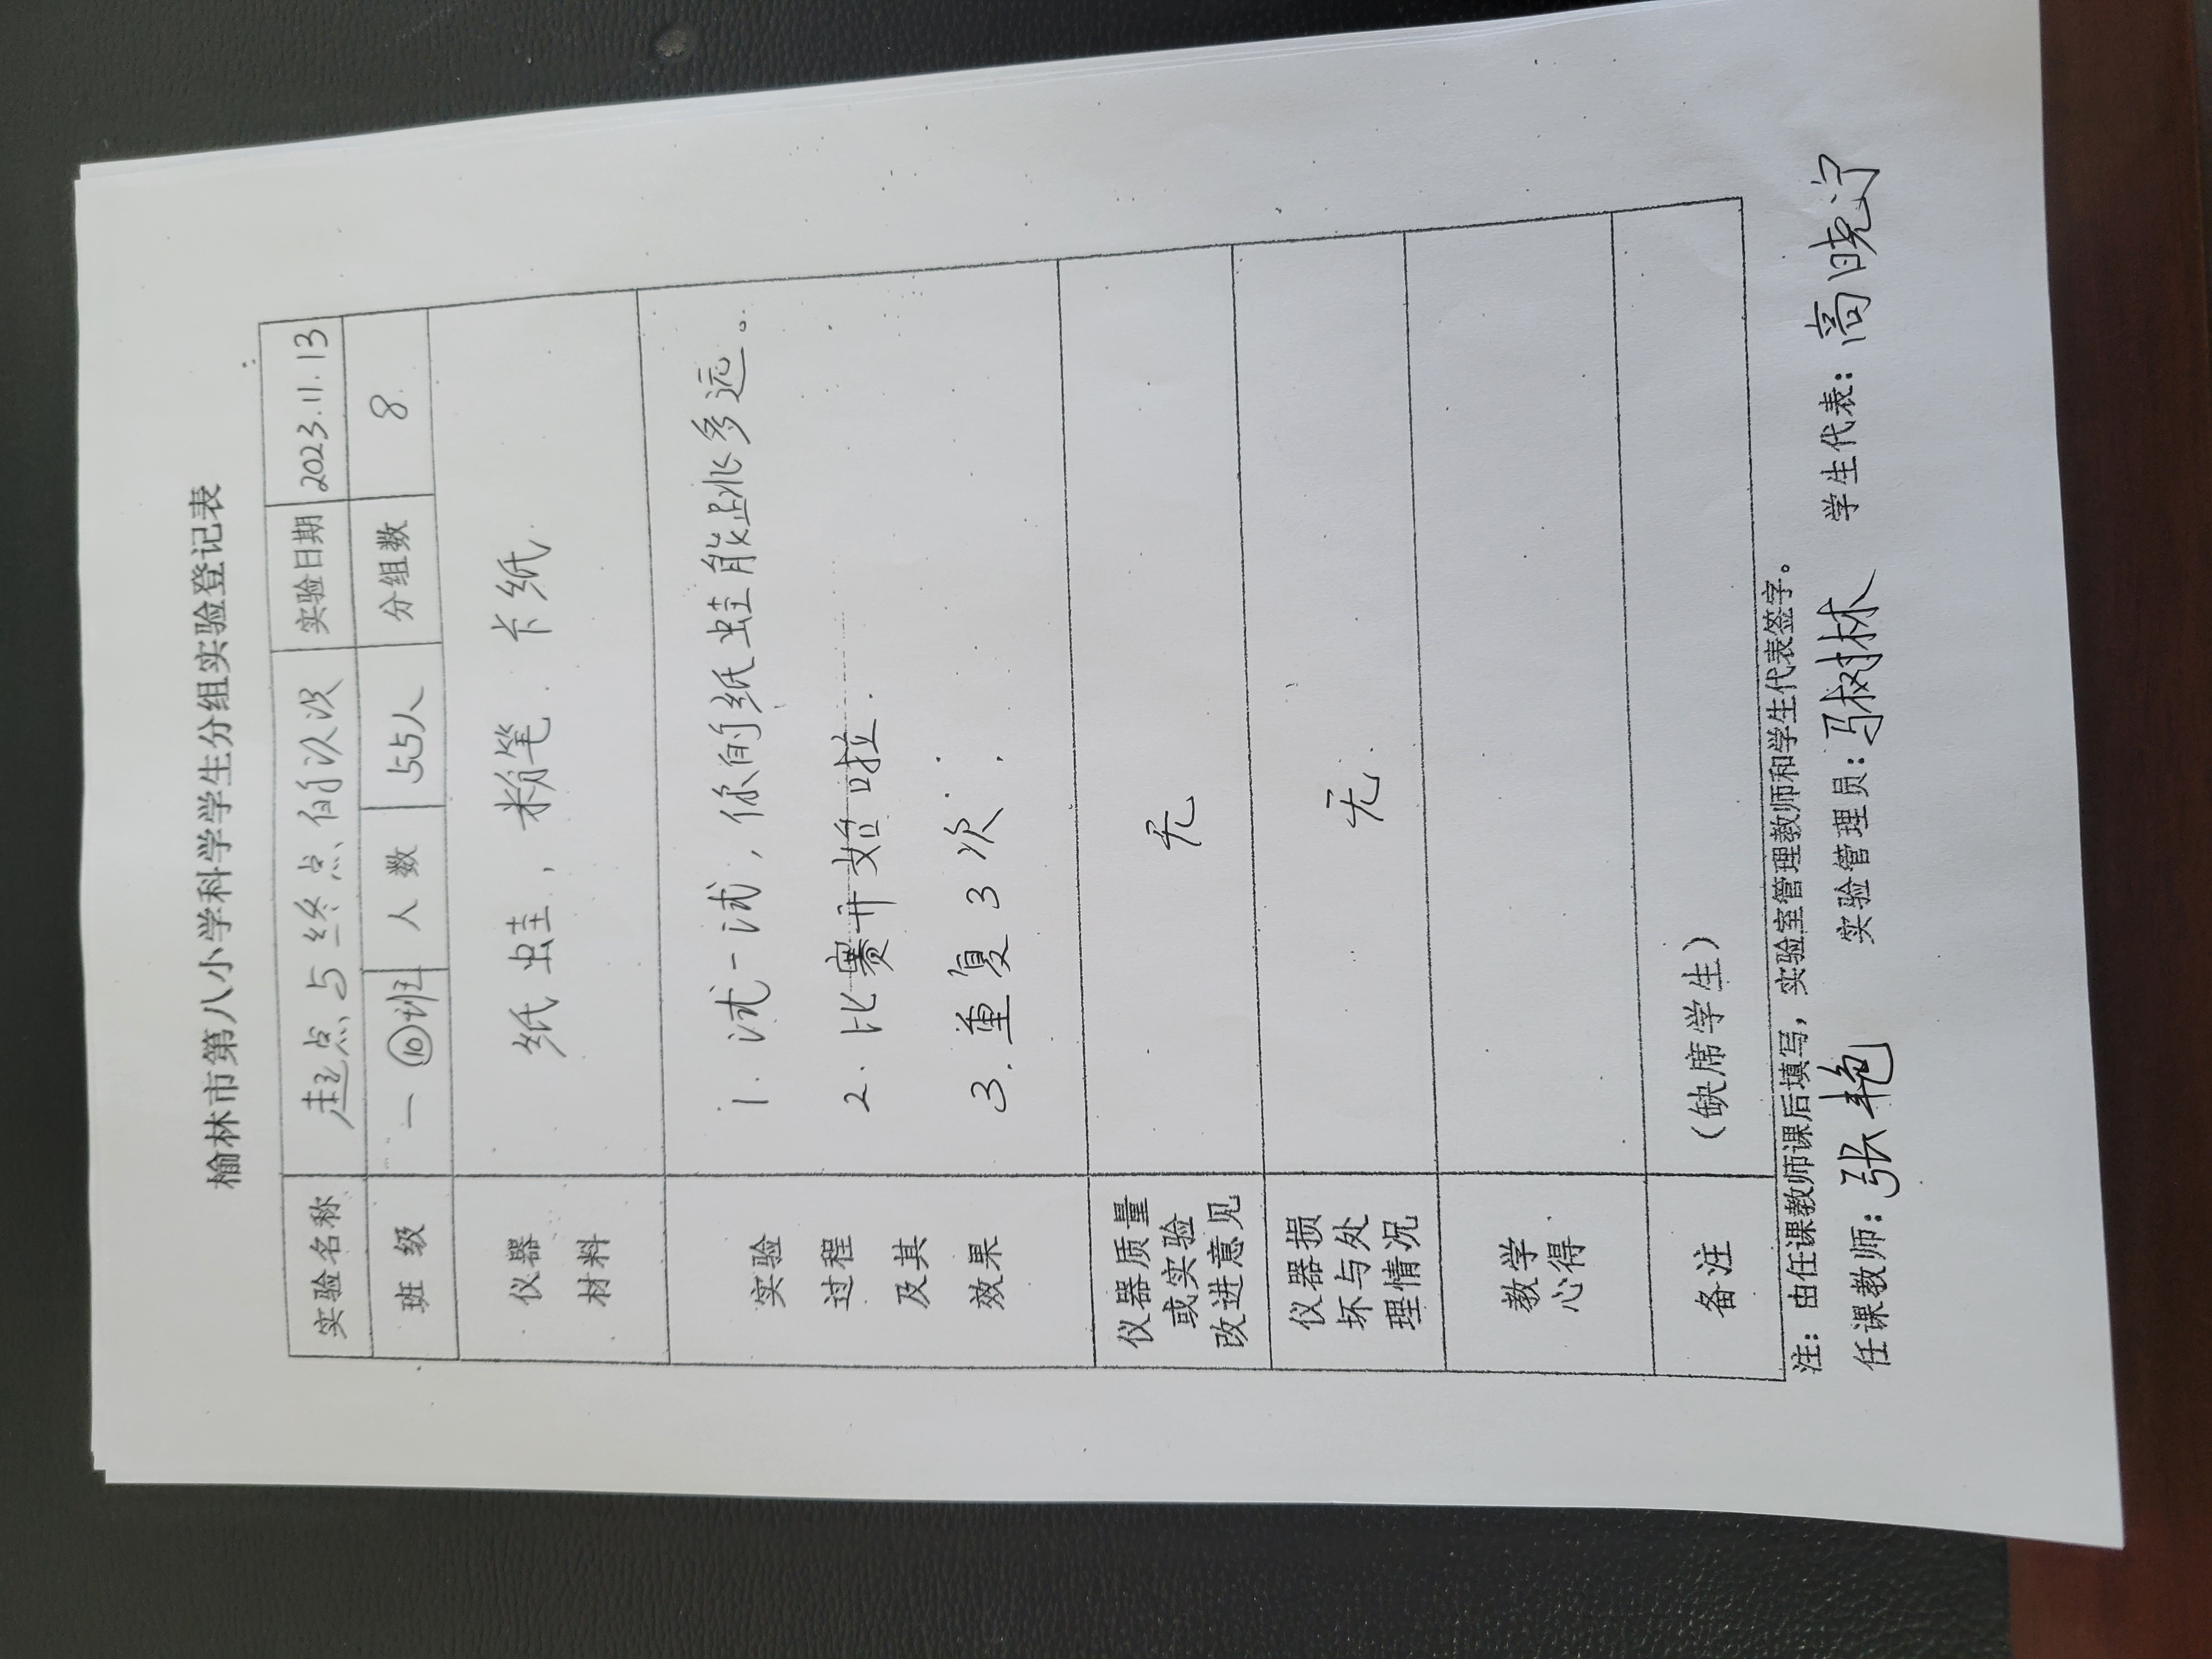 榆林市第八小学科学学生分组实验登记表
实验名称 起点与终点的认识 实验日期 2023.11.13
班 级 一⑩班 人 数 55人 分组数 8.
仪器 材料 纸蛙，粉笔．卡纸
实验 过程 及其 效果
1. 试一试，你的纸蛙能跳多远。
2. 比赛开始啦．
3. 重复3次．
仪器质量 或实验 改进意见 无
仪器损 坏与处 理情况 无．
教学 心得
备注 （缺席学生）
注：由任课教师课后填写，实验室管理教师和学生代表签字。
任课教师：张艳 实验管理员：马树林 学生代表：高晓宁